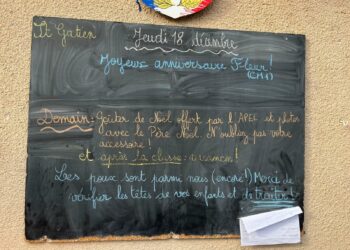 St Gatien
Jeudi 18 décembre
Joyeux anniversaire Fleur!
(CM1)
Demain: Goûter de Noël offert par l'APEE et photos
avec le Père Noël. N'oubliez pas votre
accessoire!
et après la classe: examen!
Les poux sont parmi nous (encore!) Merci de
vérifier les têtes de vos enfants et de traiter!